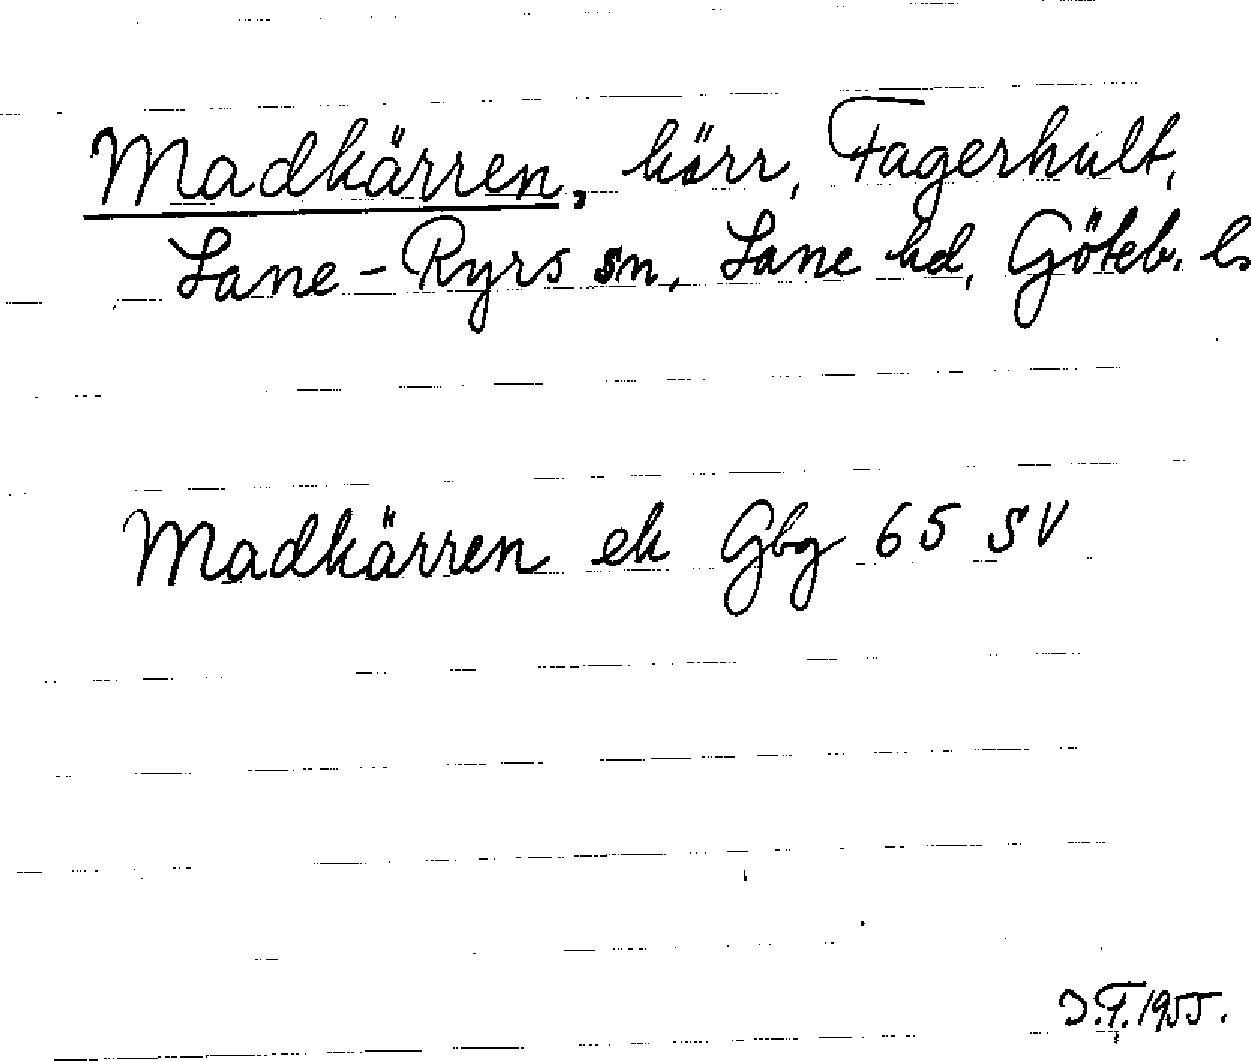 Madkärren, kärr, Fagerhult,
Lane-Ryrs sn, Lane hd, Göteb. l.
Madkärren ek Gbg 65 SV
J.F. 1955.